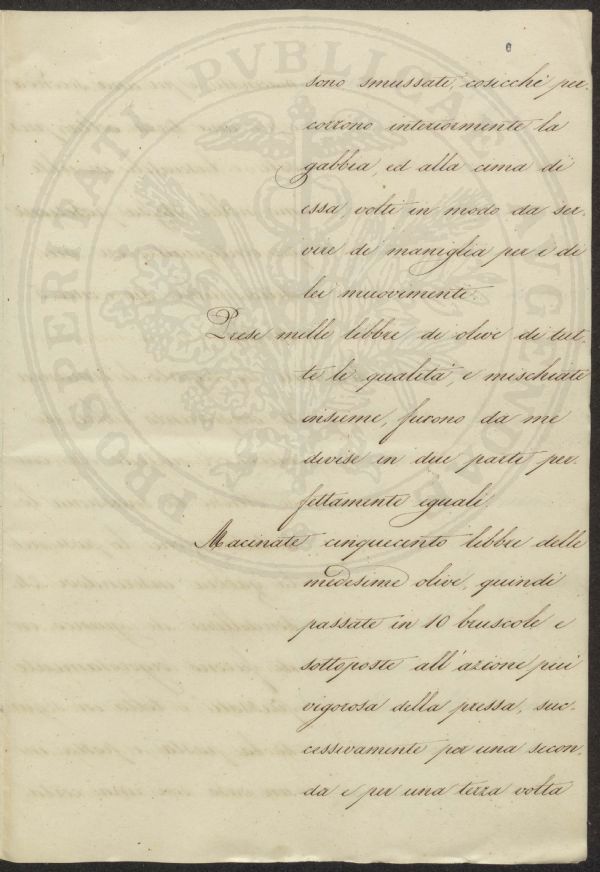 sono smussati, cosicchè per-
corrono interiormente la
gabbia, ed alla cima di
essa, volti in modo da ser-
vire di maniglia per i di
lei muovimenti.
Prese mille libbre di olive di tut-
te le qualità, e mischiate
insieme, furono da me
divise in due parti per-
fettamente eguali.
Macinate cinquecento libbre delle
medesime olive, quindi
passate in 10 bruscole e
sottoposte all'azione più
vigorosa della pressa, suc-
cessivamente per una secon-
da e per una terza volta
PROSPERITATI PVBLICAE AVGENDAE